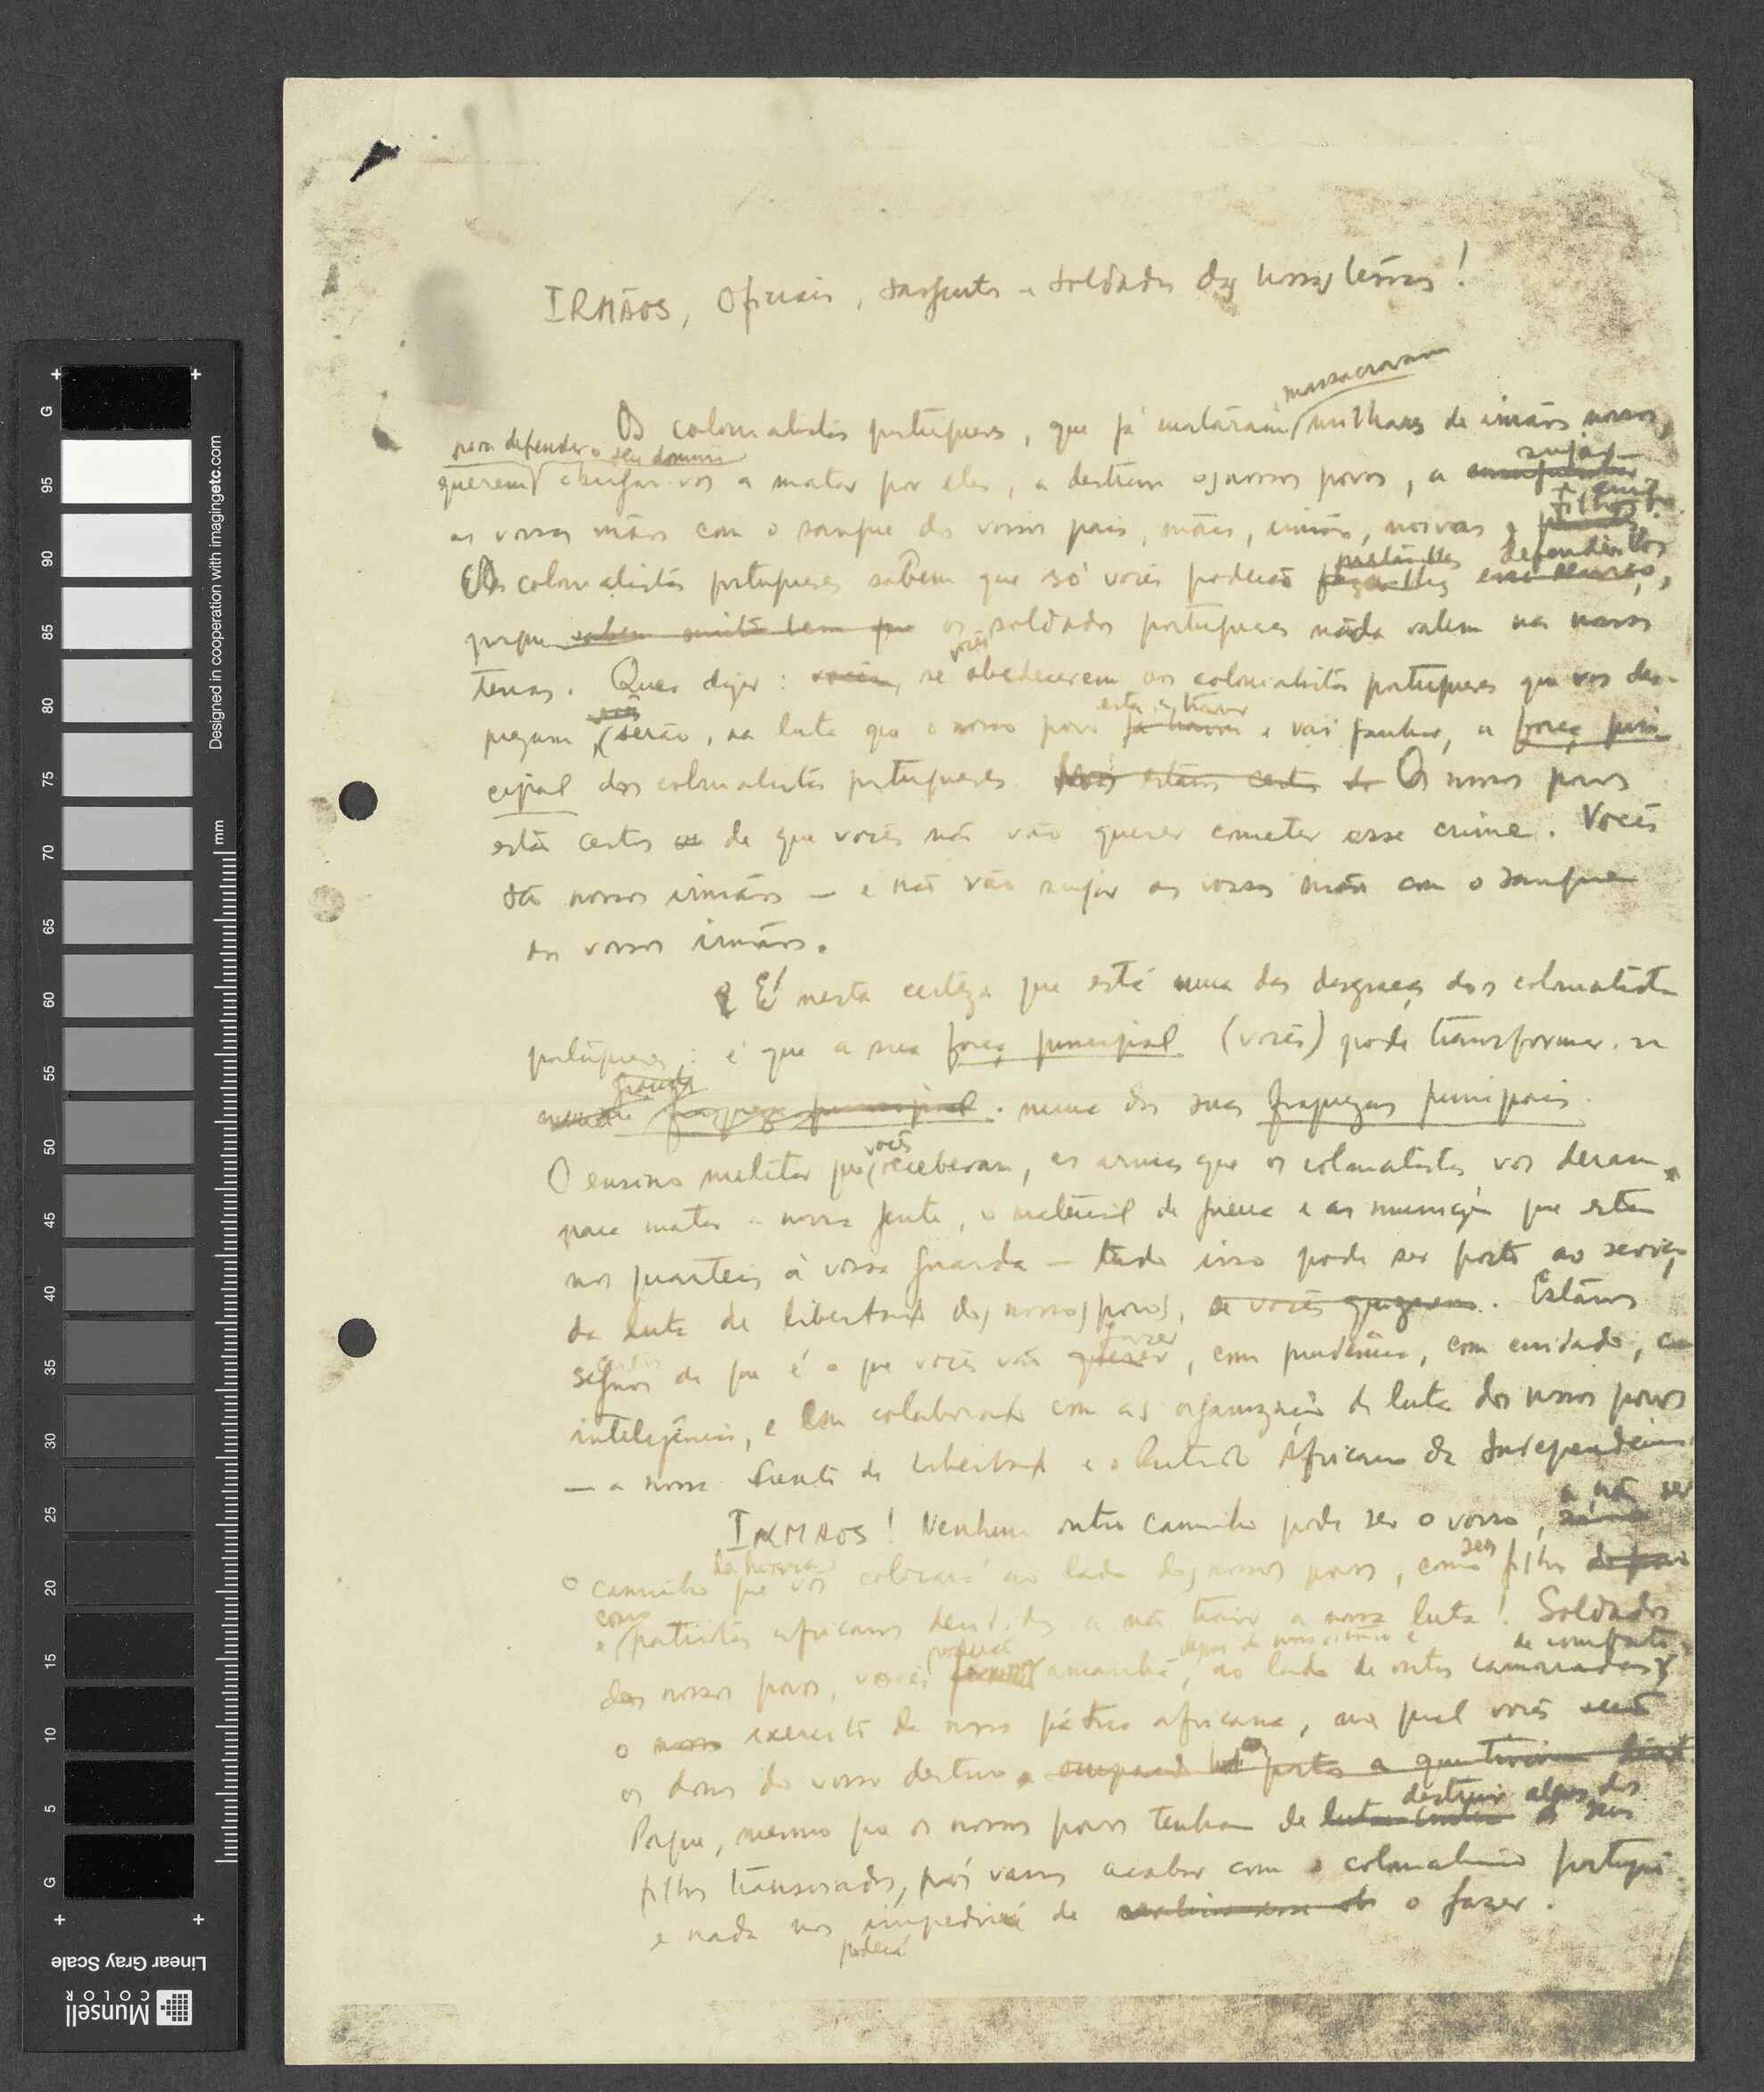 IRMÃOS, Oficiais, sargentos e soldados das nossas terras!
massacraram
Os colonialistas portugueses, que já mataram milhares de irmãos nossos,
para defender o seu domínio sujar
querem obrigar-vos a matar por eles, a destruir os nossos povos, a
filhos
as vossas mãos com o sangue dos vossos pais, mães, irmãos, noivas e
defendê-los
Os colonialistas portugueses sabem que só vocês poderão
porque sabem muito bem que os soldados portugueses nada valem nas nossas
vocês
terras. Quer dizer: vocês, se obedecerem aos colonialistas portugueses que vos des-
está a travar
prezam serão, na luta que o nosso povo já travou e vai ganhar, a força prin-
cipal dos colonialistas portugueses. Nós estamos certos de Os nossos povos
estão certos de que vocês não vão querer cometer esse crime. Vocês
são nossos irmãos — e não vão sujar as vossas mãos com o sangue
dos vossos irmãos.
É nesta certeza que está uma das desgraças dos colonialistas
portugueses: é que a sua força principal (vocês) pode transformar-se
grande
numa fraqueza principal. numa das suas fraquezas principais.
vocês
O ensino militar que receberam, as armas que os colonialistas vos deram
para matar a nossa gente, o material de guerra e as munições que estão
nos quarteis à vossa guarda — tudo isso pode ser posto ao serviço
da luta de libertação dos nossos povos, se vocês quiserem. Estamos
certos fazer
seguros de que é o que vocês vão querer, com prudência, com cuidado, com
inteligência, e em colaboração com as organizações de luta dos nossos povos
— a nossa Frente de Libertação e o Partido Africano da Independência
a não ser
IRMÃOS! Nenhum outro caminho pode ser o vosso,
da honra seus
o caminho que vos colocará ao lado dos nossos povos, como filhos
como
e patriotas africanos decididos a não trair a nossa luta! Soldados
poderão depois de e de combate
dos nossos povos, vocês amanhã, ao lado de outros camaradas
o nosso exercito da nossa pátria africana, na qual vocês serão
os donos do vosso destino, ocupando postos a que tiverem
destruir alguns dos
Porque, mesmo que os nossos povos tenham de lutar contra os seus
filhos transviados, nós vamos acabar com o colonialismo português
e nada nos impedirá de o fazer.
poderá